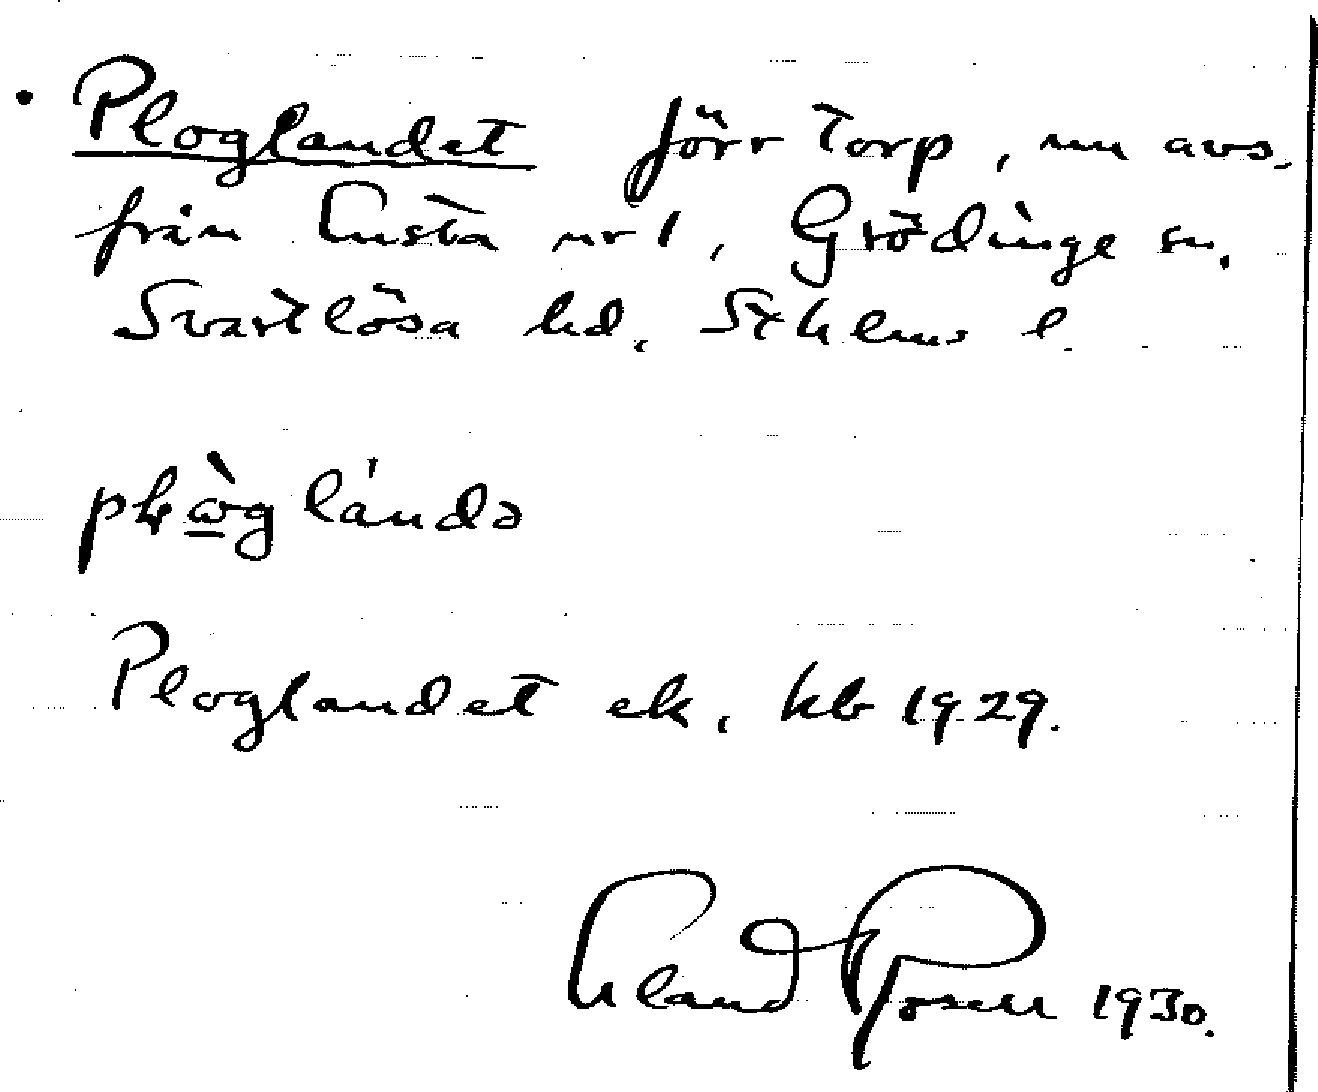 Ploglandet förr torp, nu avs.
från Uusta nr 1, Grödinge sn.
Svartlösa hd. Sthlms l.
Ploglandet ek. kb 1929.
Erland Rosell 1930.